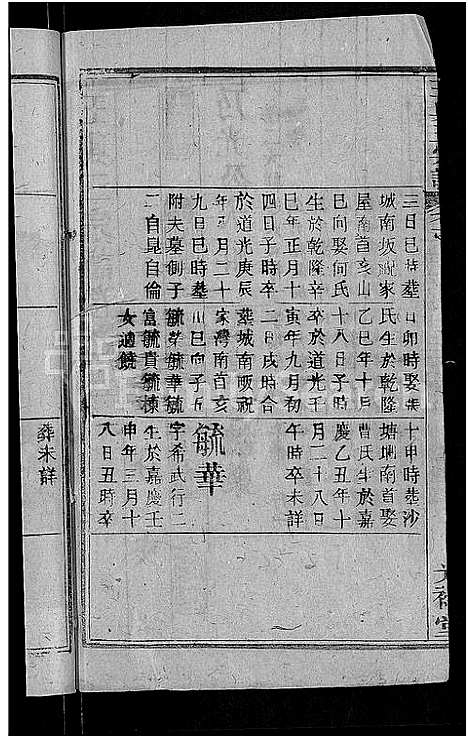 三日巳時葬
城南坂祝家
屋南首亥山
巳向娶何氏
生於乾隆辛
巳年正月十
四日子時卒
於道光庚辰
年 月二十
九日巳時葬
附夫墓側子
二自昆自倫
日卯時娶
氏生於乾隆
乙巳年十月
十八日子時
卒於道光壬
寅年九月初
二日戌時合
葬城南畈祝
家灣南首亥
山巳向子五
毓榮毓華毓
富毓貴毓棟
女適饒
十申時葬沙
塘 南首娶
曹氏生於嘉
慶乙丑年十
月二十八日
午時卒未詳
毓華
字希武行二
生於嘉慶壬
申年三月十
八日丑時卒
葬未詳